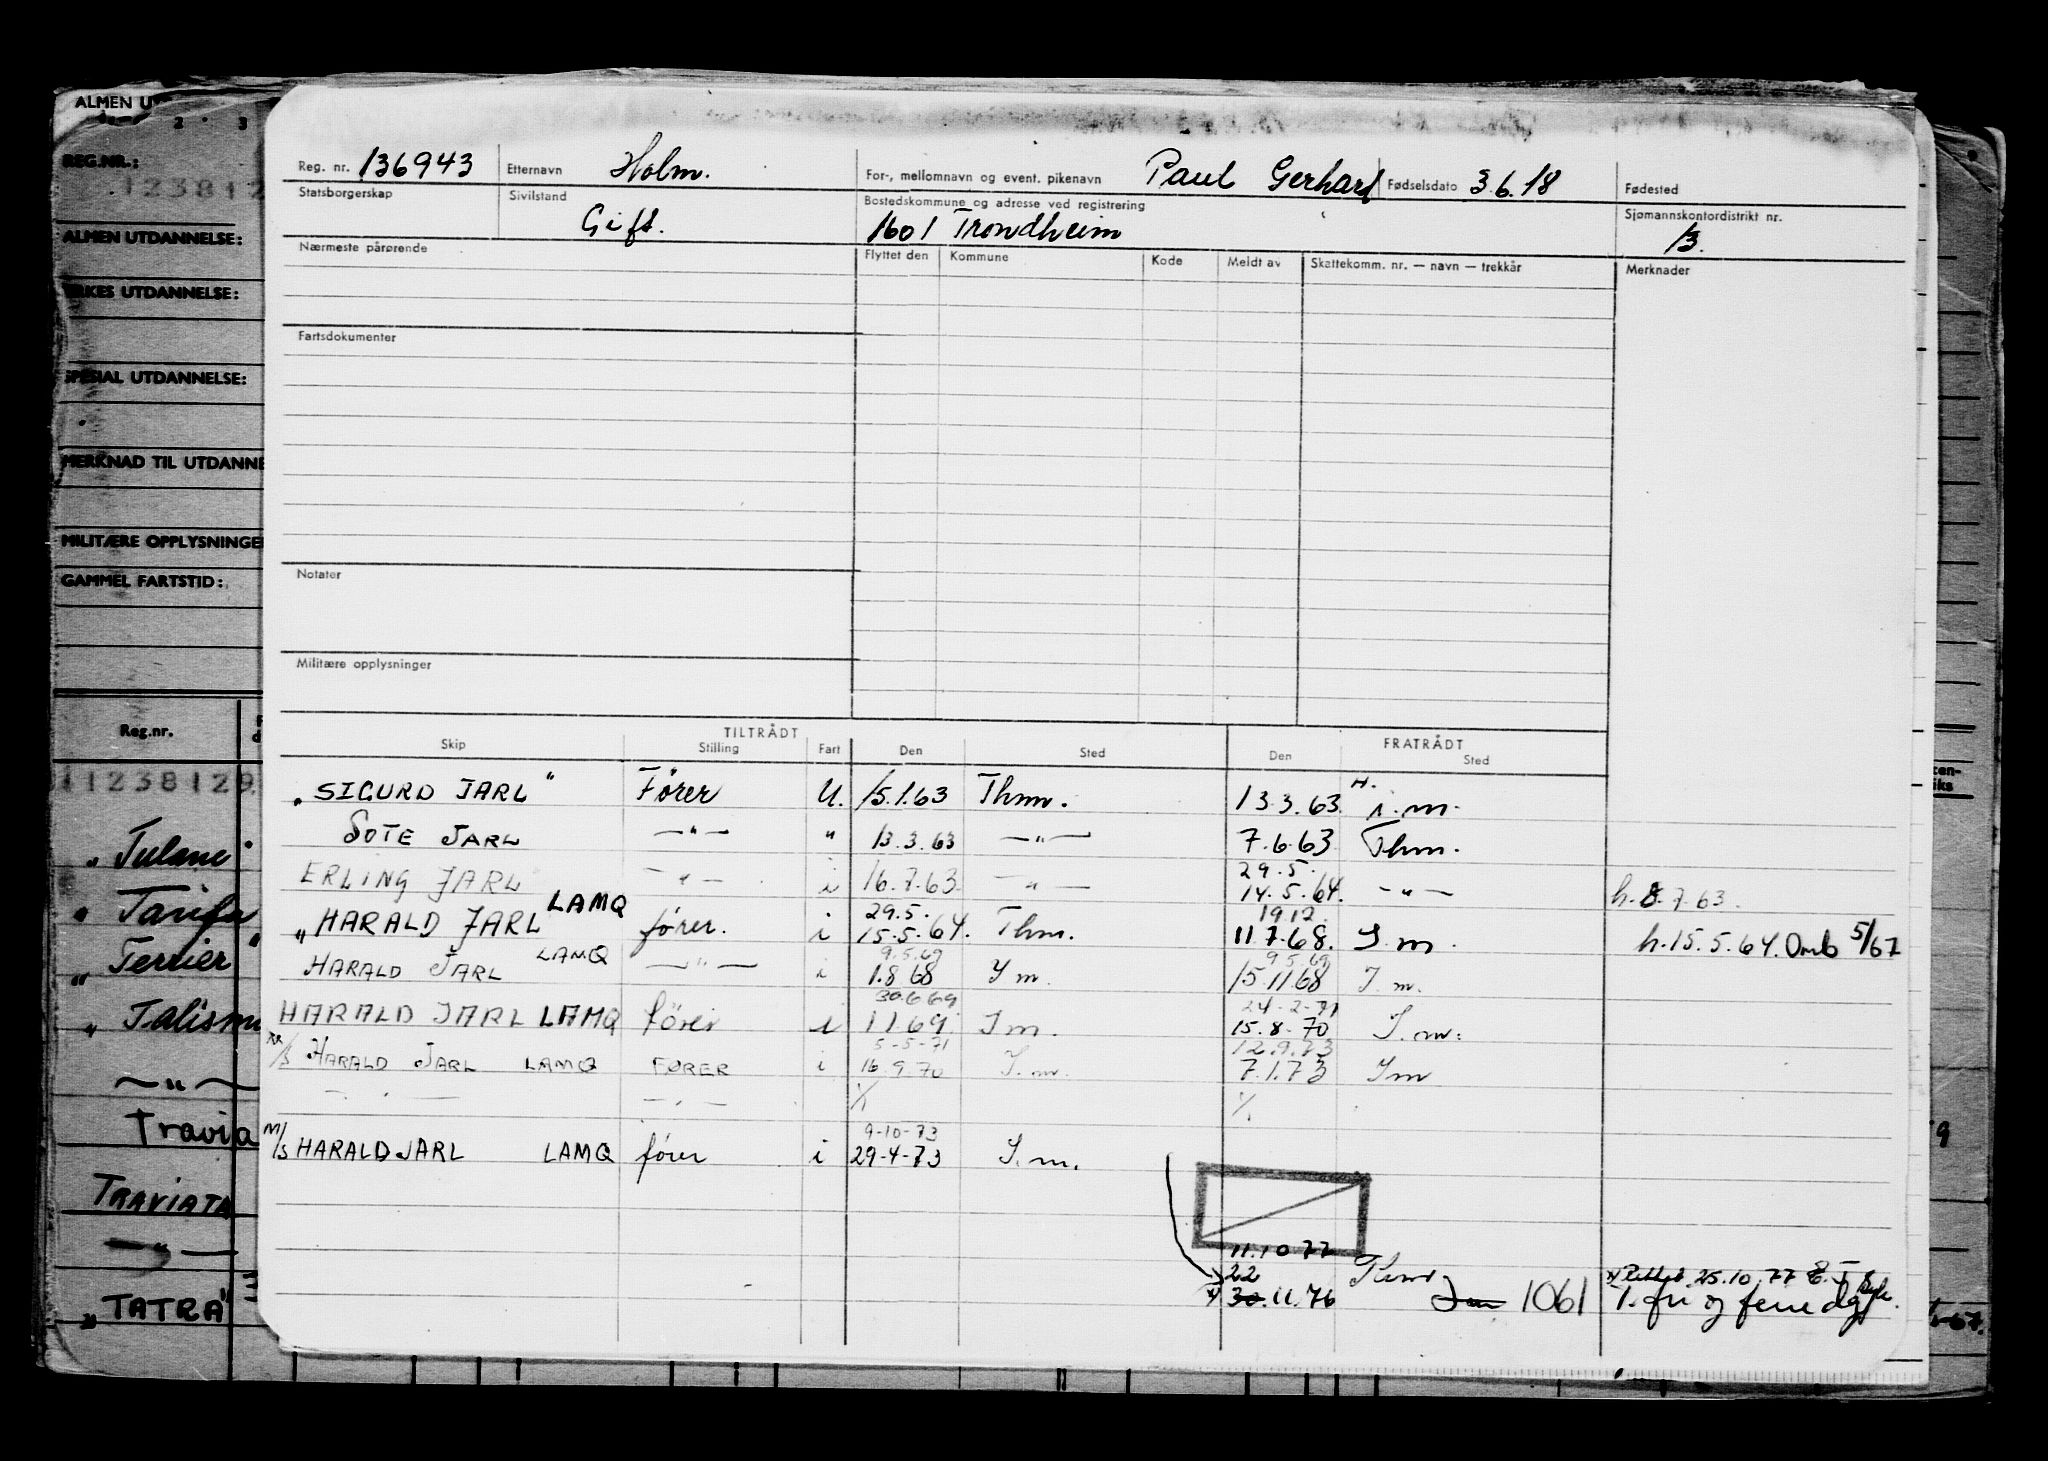 ALMEN U
2 3
REG.NR.:
123812
ALMEN UTDANNELSE:
RKES UTDANNELSE:
SPESIAL UTDANNELSE:
MERKNAD TIL UTDANNE
MILITÆRE OPPLYSNINGE
GAMMEL FARTSTID:
Reg.nr.
11238129
"Tulane"
" Tarifa
" Terrier"
" Talism
— " —
Travia
TRAVIATA
— " —
" TATRA"
Reg. nr. 136943 Etternavn Holm. For-, mellomnavn og event. pikenavn Paul Gerhard Fødselsdato 3.6.18 Fødested
Statsborgerskap Sivilstand Gift. Bostedskommune og adresse ved registrering 1601 Trondheim Sjømannskontordistrikt nr. 13.
Nærmeste pårørende Flyttet den Kommune Kode Meldt av Skattekomm. nr. — navn — trekkår Merknader
Fartsdokumenter
Notater
Militære opplysninger
TILTRÅDT FRATRÅDT
Skip Stilling Fart Den Sted Den Sted
"SIGURD JARL" Fører U. 15.1.63 Thm. 13.3.63. H. i.m.
SOTE JARL — " — " 13.3.63 — " — 7.6.63 Thm.
29.5.
ERLING JARL — " — i 16.7.63. — " — 14.5.64. — " — h. 8.7.63.
29.5. 19.12.
"HARALD JARL LAMQ fører. i 15.5.64. Thm. 11.7.68. I.m. h.15.5.64. Omb 5/67
9.5.69 9.5.69
HARALD JARL LAMQ — " — i 1.8.68 I m. 15.11.68 I.m.
30.6.69 24-2-71
HARALD JARL LAMQ fører i 1.1.69. I m. 15.8.70 I.m.
5-5-71 12.9.73
HARALD JARL LAMQ FØRER i 16.9.70 I.m. 7.1.73 I m
— " — — " —
9-10-73
M/S HARALD JARL LAMQ fører i 29-4-73 I.m.
11.10 77
22
30.11.76 1061
25.10.77
1. fri og feriedg.
9
-67.